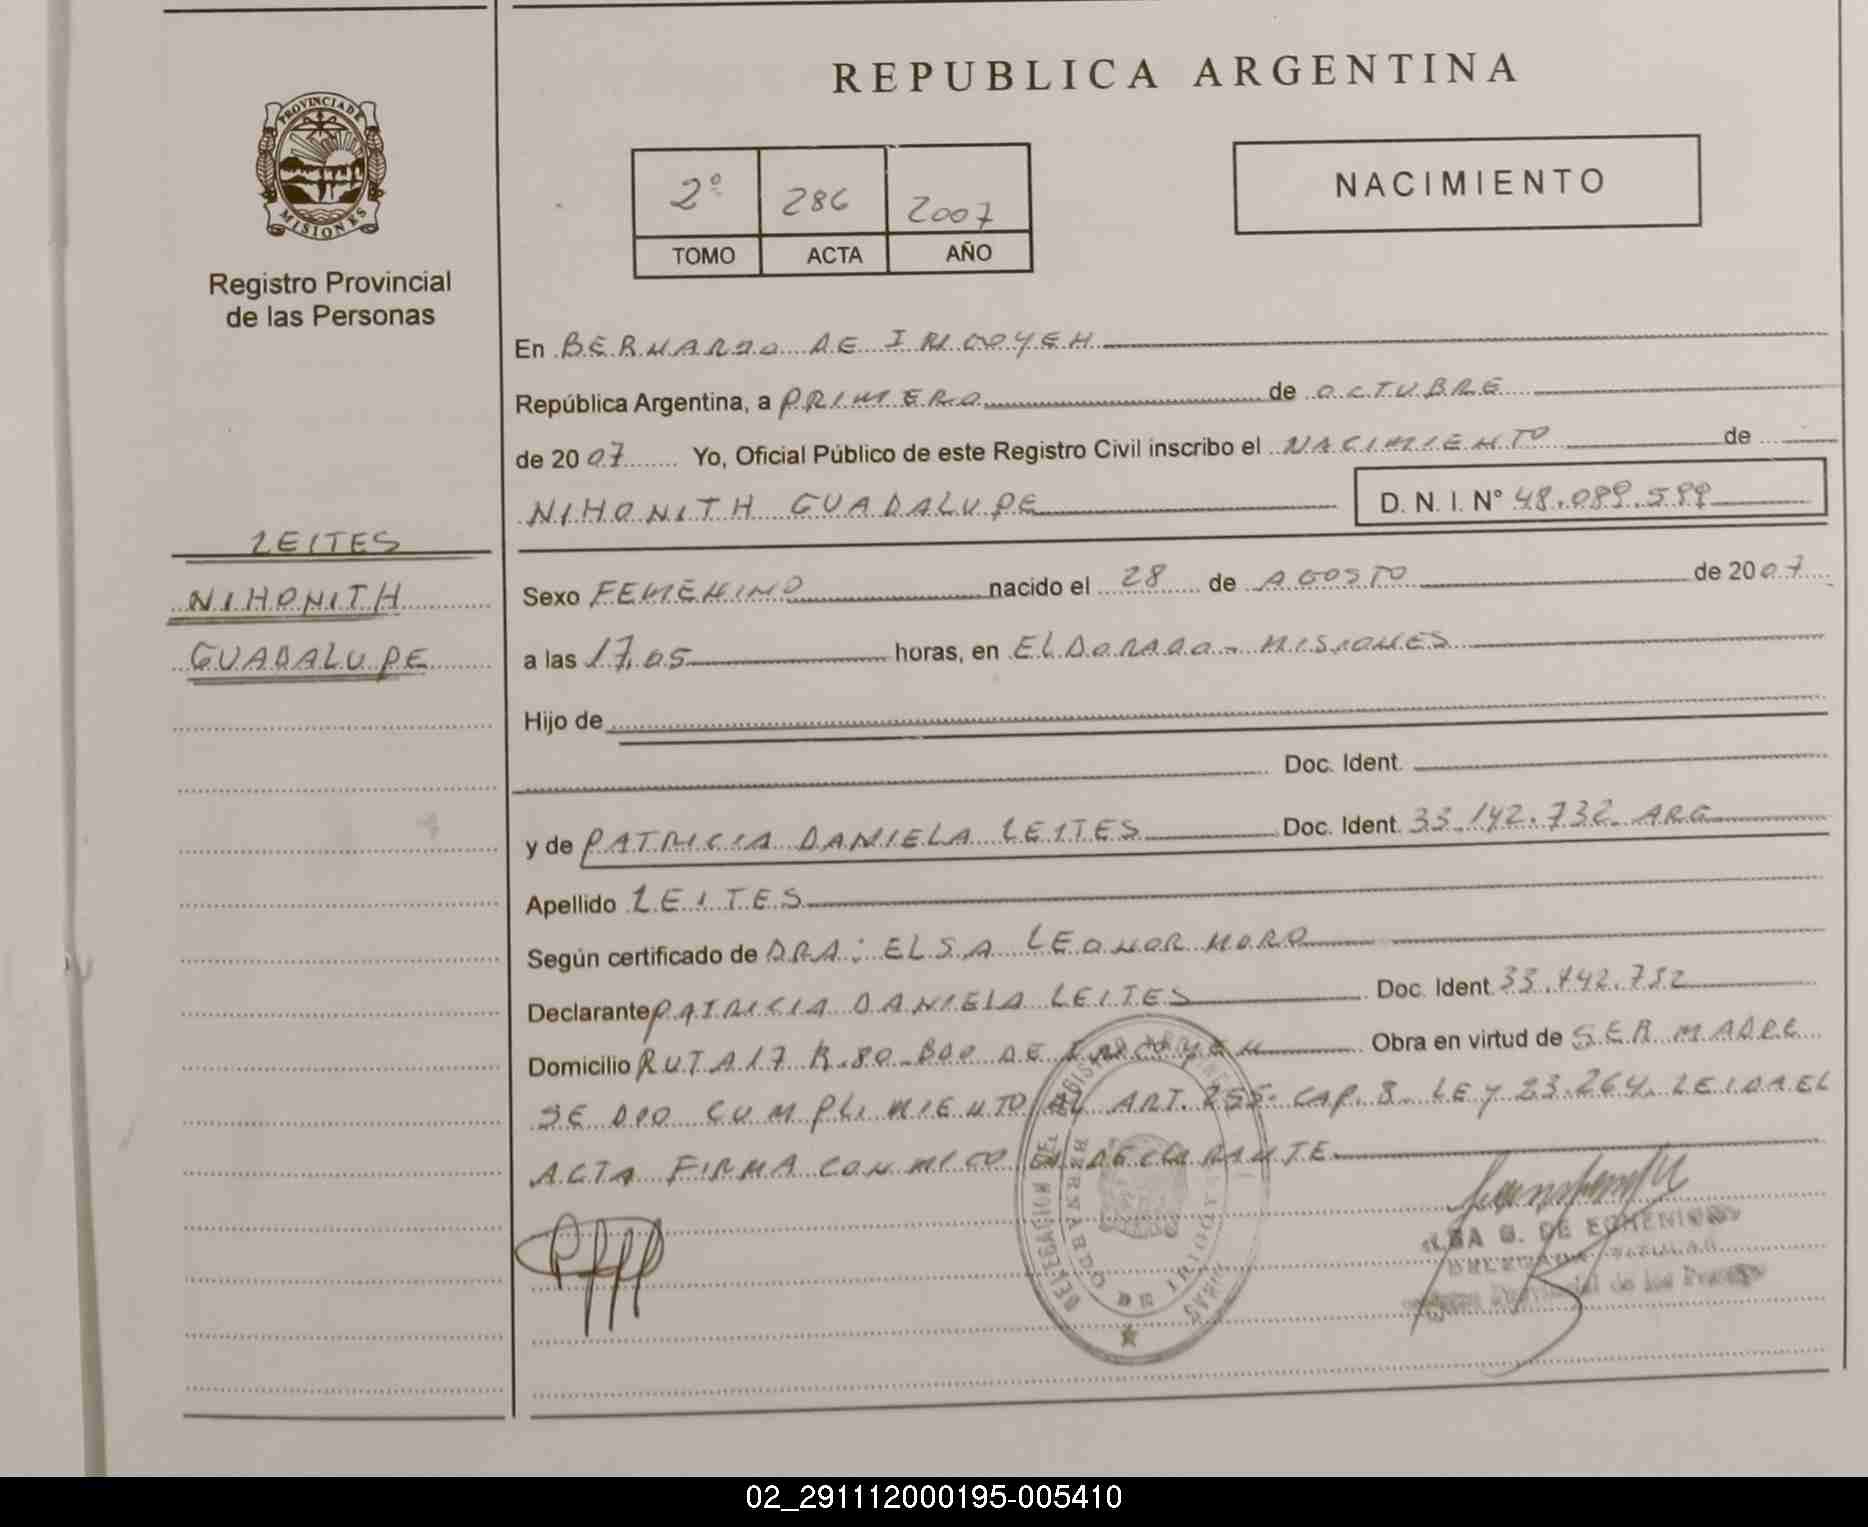 REPUBLICA ARGENTINA
PROVINCIA DE
MISIONES
Registro Provincial
de las Personas
2º 286 2007
TOMO ACTA AÑO
NACIMIENTO
En BERNARDO DE IRIGOYEN
República Argentina, a PRIMERO de OCTUBRE
de 2007 Yo, Oficial Público de este Registro Civil inscribo el NACIMIENTO de
NIHONITH GUADALUPE D. N. I. Nº 48.089.599
LEITES
NIHONITH
GUADALUPE
Sexo FEMENINO nacido el 28 de AGOSTO de 2007
a las 17,05 horas, en ELDORADO - MISIONES
Hijo de
Doc. Ident.
y de PATRICIA DANIELA LEITES Doc. Ident. 33.142.732 ARG
Apellido LEITES
Según certificado de DRA: ELSA LEONOR MORO
Declarante PATRICIA DANIELA LEITES Doc. Ident. 33.142.732
Domicilio RUTA 17 K.80 BDO DE IRIGOYEN Obra en virtud de SER MADRE
SE DIO CUMPLIMIENTO AL ART. 255- CAP. 8. LEY 23.264. LEIDA EL
ACTA FIRMA CONMIGO EL DECLARANTE
BERNARDO DE IRIGOYEN
DE
02_291112000195-005410